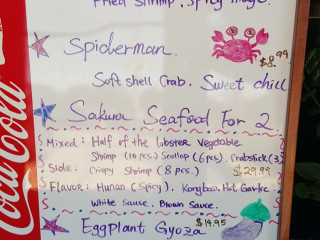 Fried Shrimp. Spicy mayo.
Spiderman.
$8.99
Soft shell Crab. Sweet chili
Sakura Seafood For 2
Mixed: Half of the lobster Vegetable
Shrimp (10 pcs) Scallop (6 pcs), Crabstick (3)
Side: Crispy Shrimp (8 pcs.) $29.99
Flavor: Hunan (Spicy). Kongbao. Hot Garlic
White Sause. Brown Sauce.
$14.95
Eggplant Gyoza
Coca-Cola